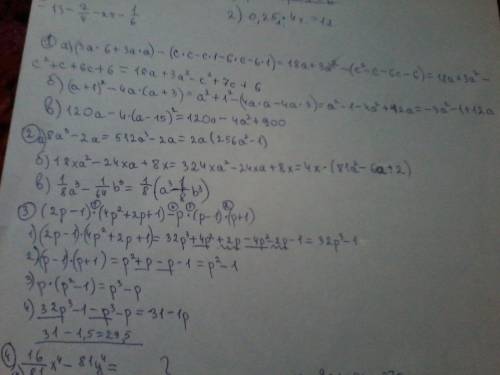 = 13 - 2/7 - xx - 1/6
2) 0,25x · 4x = 12
① а) (3a·6+3a·a) - (c·c-c·1-6·c-6·1) = 18a+3a² - (c²-c-6c-6) = 18a+3a² -
c²+c+6c+6 = 18a+3a²-c²+7c+6
б) (a+1)² - 4a·(a+3) = a²+1² - (4a·a-4a·3) = a²-1-4a²+12a = -3a²-1+12a
в) 120a - 4·(a-15)² = 120a - 4a²+900
② а) 8a³-2a = 512a³-2a = 2a(256a²-1)
б) 18xa²-24xa+8x = 324xa²-24xa+8x = 4x·(81a²-6a+2)
в) 1/8 a³ - 1/64 b³ = 1/8 (a³ - 1/8 b³)
③ (2p-1)·(4p²+2p+1) - p·(p-1)·(p+1)
1) (2p-1)·(4p²+2p+1) = 32p³+4p²+2p-4p²-2p-1 = 32p³-1
2) (p-1)·(p+1) = p²+p-p-1 = p²-1
3) p·(p²-1) = p³-p
4) 32p³-1-p³-p = 31-1p
31-1,5 = 29,5
④ 16/81 x⁴ - 81y⁴ =